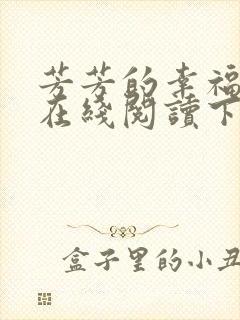 芳芳的幸福
在綫閱讀下
盒子里的小丑